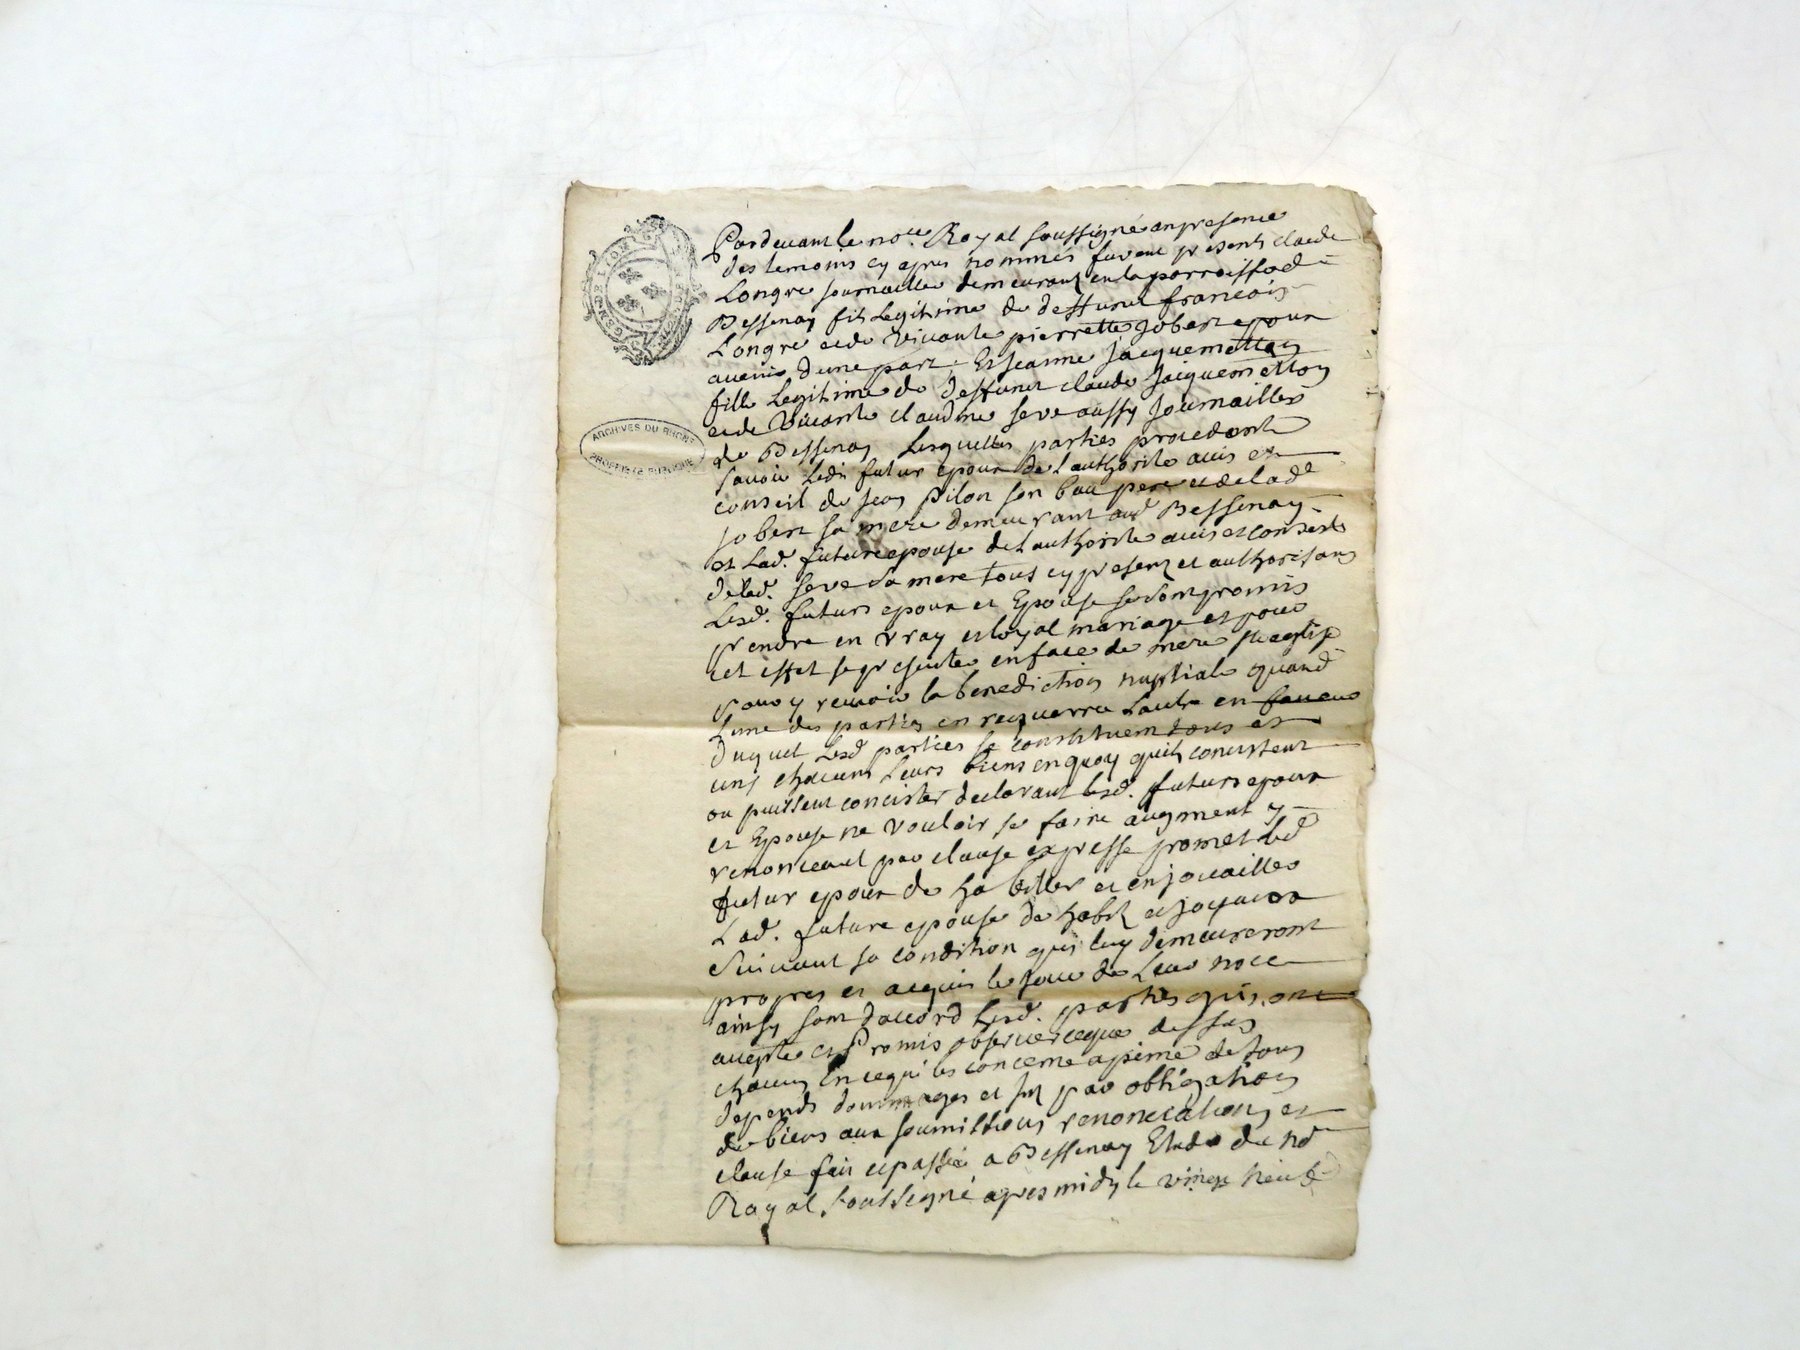 GENER LION
ARCHIVES DU RHONE
PROPRIÉTÉ PUBLIQUE
Pardevant le no.re Royal soussigné en presence
des temoins cy apres nommés furent presents claude
Longre journallier demeurant en la parroisse de
Bessenay fils Legitime de deffunct francois
Longre et de vivante pierrette Jobert epoux
avenir d'une part ; Et Jeanne Jacquemetton
fille Legitime de deffunct claude Jacquemetton
et de vivante claudine seve aussy Journaillier
de Bessenay Lesquelles parties procedant
savoir Ledt futur epoux de l'authorite avis et
conseil de Jean pilon son bau pere et de lade
Jobert sa mere demeurant aud Bessenay
et Lad. future epouse de l'authorite avis et conseil
de lad. seve sa mere tous cy present et authorisans
Lesd. futurs epoux et Epouse se sompromis
prendre en vray et loyal mariage et pour
cet effet se presenter en face de mere Ste eglise
pour y recevoir la benediction nuptiale quand
Lune des parties en requerra Lautre en faveur
duquel Lesd parties se constituent tous et
uns chacuns Leurs biens en quoy quils concistent
ou puissent concister declarant lesd. futurs epoux
et Epouse ne vouloir se faire augment y
renonceant par clause expresse promet led
futur epoux de habiller et enjouailler
Lad. future epouse de habit et joyaux
suivant sa condition qui luy demeureront
propres et acquis le jour de Leur noce
ainsy sont d'accord Lesd. parties qui ont
accepté et Promis observer ce que dessus
chacun En ce qui les concerne a peine de tous
depends dommages et Int par obligation
de biens aux soumissions renonciations et
clause fait et passé a Bessenay Etude du nre
Royal soussigné apres midy le vingt neuf